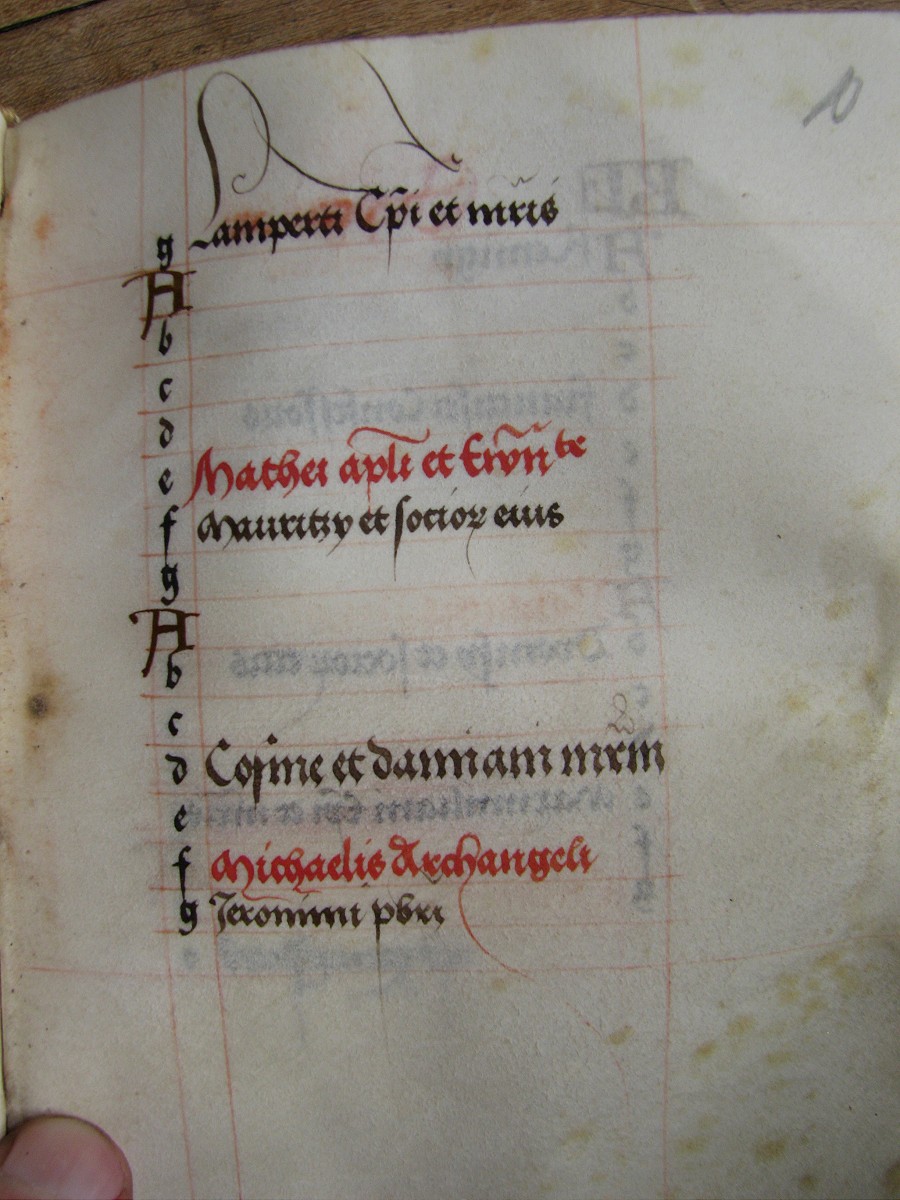 10
g Lamperti Ep̄i et mr̄is
A
b
c
d
e Mathei apl̄i et Ewn̄te
f Mauritzy et socioꝝ eius
g
A
b
c
d Cosme et damiani mr̄m
e
f Michaelis Archangeli
g Jeronimi pb̄ri